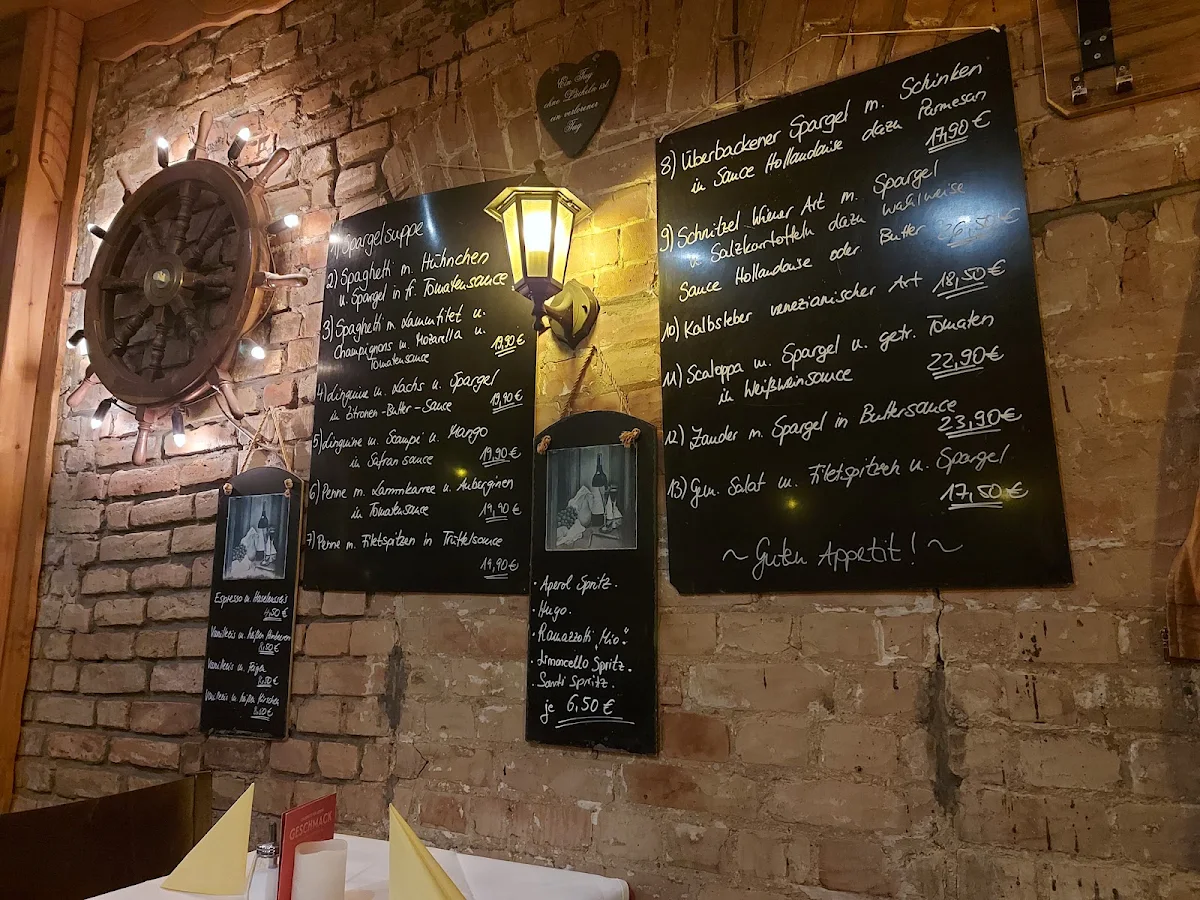 Ein Tag
ohne Lächeln ist
ein verlorener
Tag
1) Spargelsuppe
2) Spaghetti m. Hühnchen
u. Spargel in fr. Tomatensauce
3) Spaghetti m. Lammfilet u.
Champignons u. Mozarella u.
Tomatensauce 19,90 €
4) Linguine m. Lachs u. Spargel
in Zitronen-Butter-Sauce 19,90 €
5) Linguine m. Scampi u. Mango
in Safransauce 19,90 €
6) Penne m. Lammkarree u. Auberginen
in Tomatensauce 19,90 €
7) Penne m. Filetspitzen in Trüffelsauce
19,90 €
8) Überbackener Spargel m. Schinken
in Sauce Hollandaise dazu Parmesan
17,90 €
9) Schnitzel Wiener Art m. Spargel
u. Salzkartotteln dazu wahlweise
Sauce Hollandaise oder Butter 26,50 €
10) Kalbsleber venezianischer Art 18,50 €
11) Scaloppa m. Spargel u. getr. Tomaten
in Weißweinsauce 22,90 €
12) Zander m. Spargel in Buttersauce
23,90 €
13) Gem. Salat m. Filetspitzen u. Spargel
17,50 €
~ Guten Appetit! ~
Espresso m. Haselnusseis
4,50 €
Vanilleeis m. heißen Himbeeren
8,50 €
Vanilleeis m. Feigen
8,50 €
Vanilleeis m. heißen Kirschen
8,50 €
· Aperol Spritz.
· Hugo.
· Ramazzotti „Mio".
· Limoncello Spritz.
· Santi Spritz.
je 6,50 €
GESCHMACK